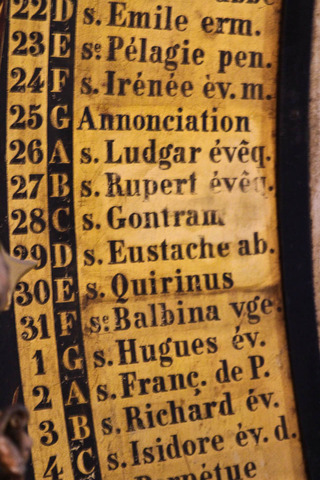 22 D s. Emile erm.
23 E se Pélagie pen.
24 F s. Irénée év. m.
25 G Annonciation
26 A s. Ludgar évêq.
27 B s. Rupert évêq.
28 C s. Gontram
29 D s. Eustache ab.
30 E s. Quirinus
31 F se Balbina vge.
1 G s. Hugues év.
2 A s. Franç. de P.
3 B s. Richard év.
4 C s. Isidore év. d.